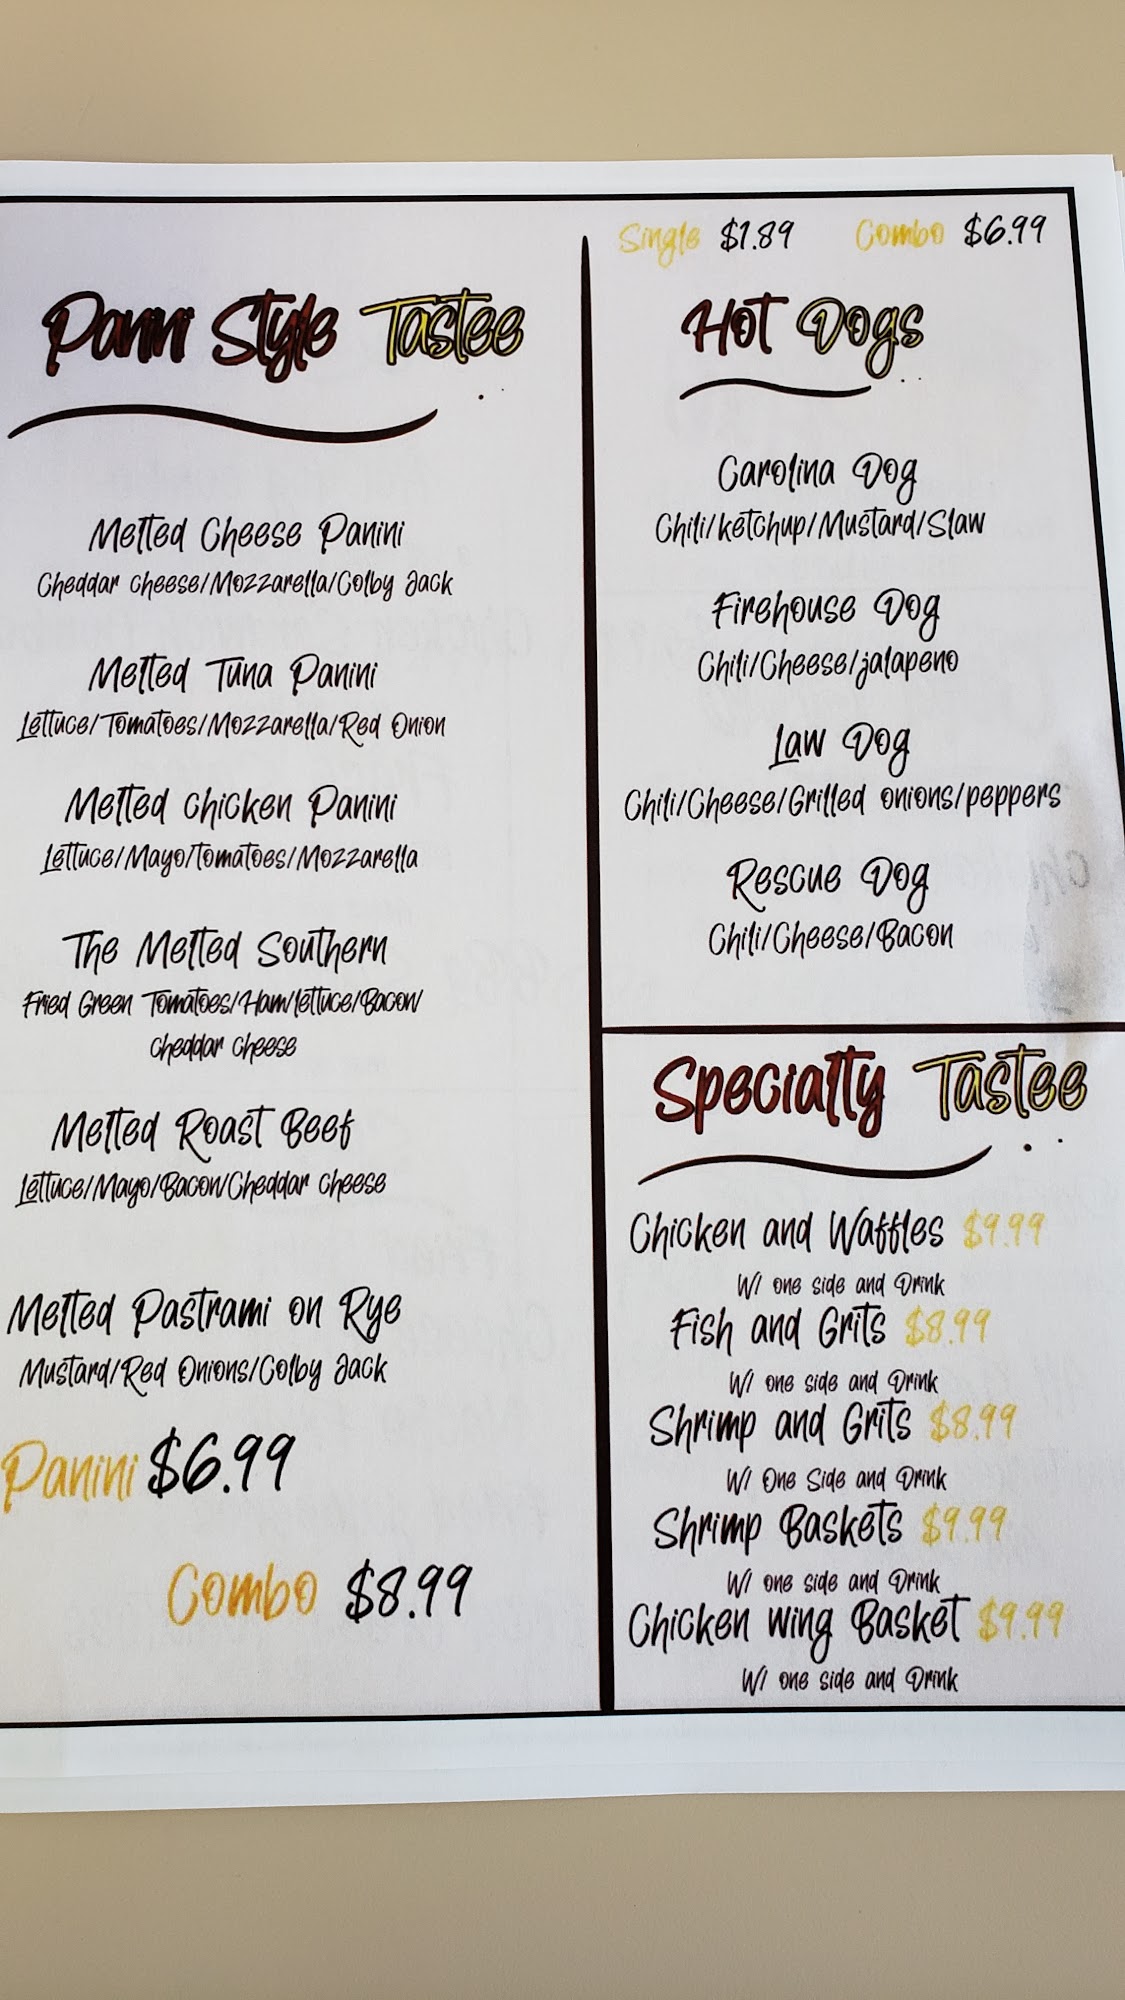 Panini Style Tastee
Melted Cheese Panini
Cheddar cheese/Mozzarella/Colby Jack
Melted Tuna Panini
Lettuce/Tomatoes/Mozzarella/Red Onion
Melted chicken Panini
Lettuce/Mayo/tomatoes/Mozzarella
The Melted Southern
Fried Green Tomatoes/Ham/lettuce/Bacon/
cheddar cheese
Melted Roast Beef
Lettuce/Mayo/Bacon/Cheddar cheese
Melted Pastrami on Rye
Mustard/Red Onions/Colby Jack
Panini $6.99
Combo $8.99
Single $1.89 Combo $6.99
Hot Dogs
Carolina Dog
Chili/ketchup/Mustard/Slaw
Firehouse Dog
Chili/Cheese/jalapeno
Law Dog
Chili/Cheese/Grilled onions/peppers
Rescue Dog
Chili/Cheese/Bacon
Specialty Tastee
Chicken and Waffles $9.99
W/ one side and Drink
Fish and Grits $8.99
W/ one side and Drink
Shrimp and Grits $8.99
W/ One Side and Drink
Shrimp Baskets $9.99
W/ one side and Drink
Chicken wing Basket $9.99
W/ one side and Drink